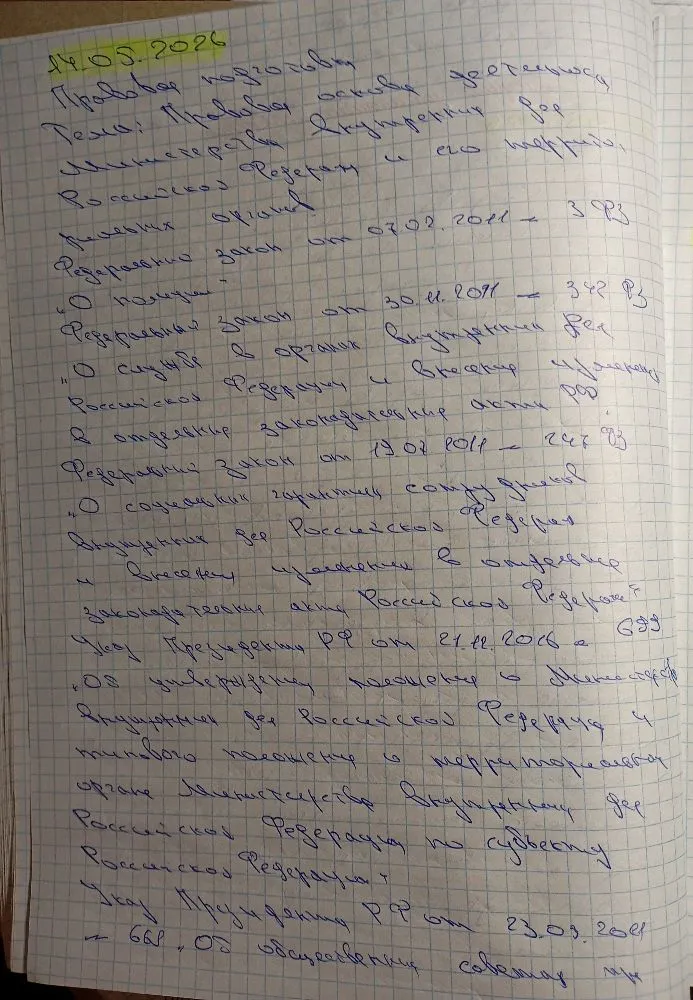 14.05.2026
Правовая подготовка
Тема: Правовая основа деятельнос
Министерства внутренних дел
Российской Федерации и его террито.
риальных органов
Федеральный закон от 07.02.2011 – 3 ФЗ
„О полиции“
Федеральный закон от 30.11.2011 – 342 ФЗ
„О службе в органах внутренних дел
Российской Федерации и внесение изменений
в отдельные законодательные акты РФ
Федеральный закон от 19.07.2011 – 247 ФЗ
„О социальных гарантиях сотрудников
внутренних дел Российской Федерации
и внесении изменений в отдельные
законодательные акты Российской Федерации“
Указ Президента РФ от 21.12.2016 – 699
„Об утверждении положения о Министерстве
внутренних дел Российской Федерации и
типового положения о территориальном
органе Министерства внутренних дел
Российской Федерации по субъекту
Российской Федерации“
Указ Президента РФ от 23.05.2011
– 668 „Об общественных советах при